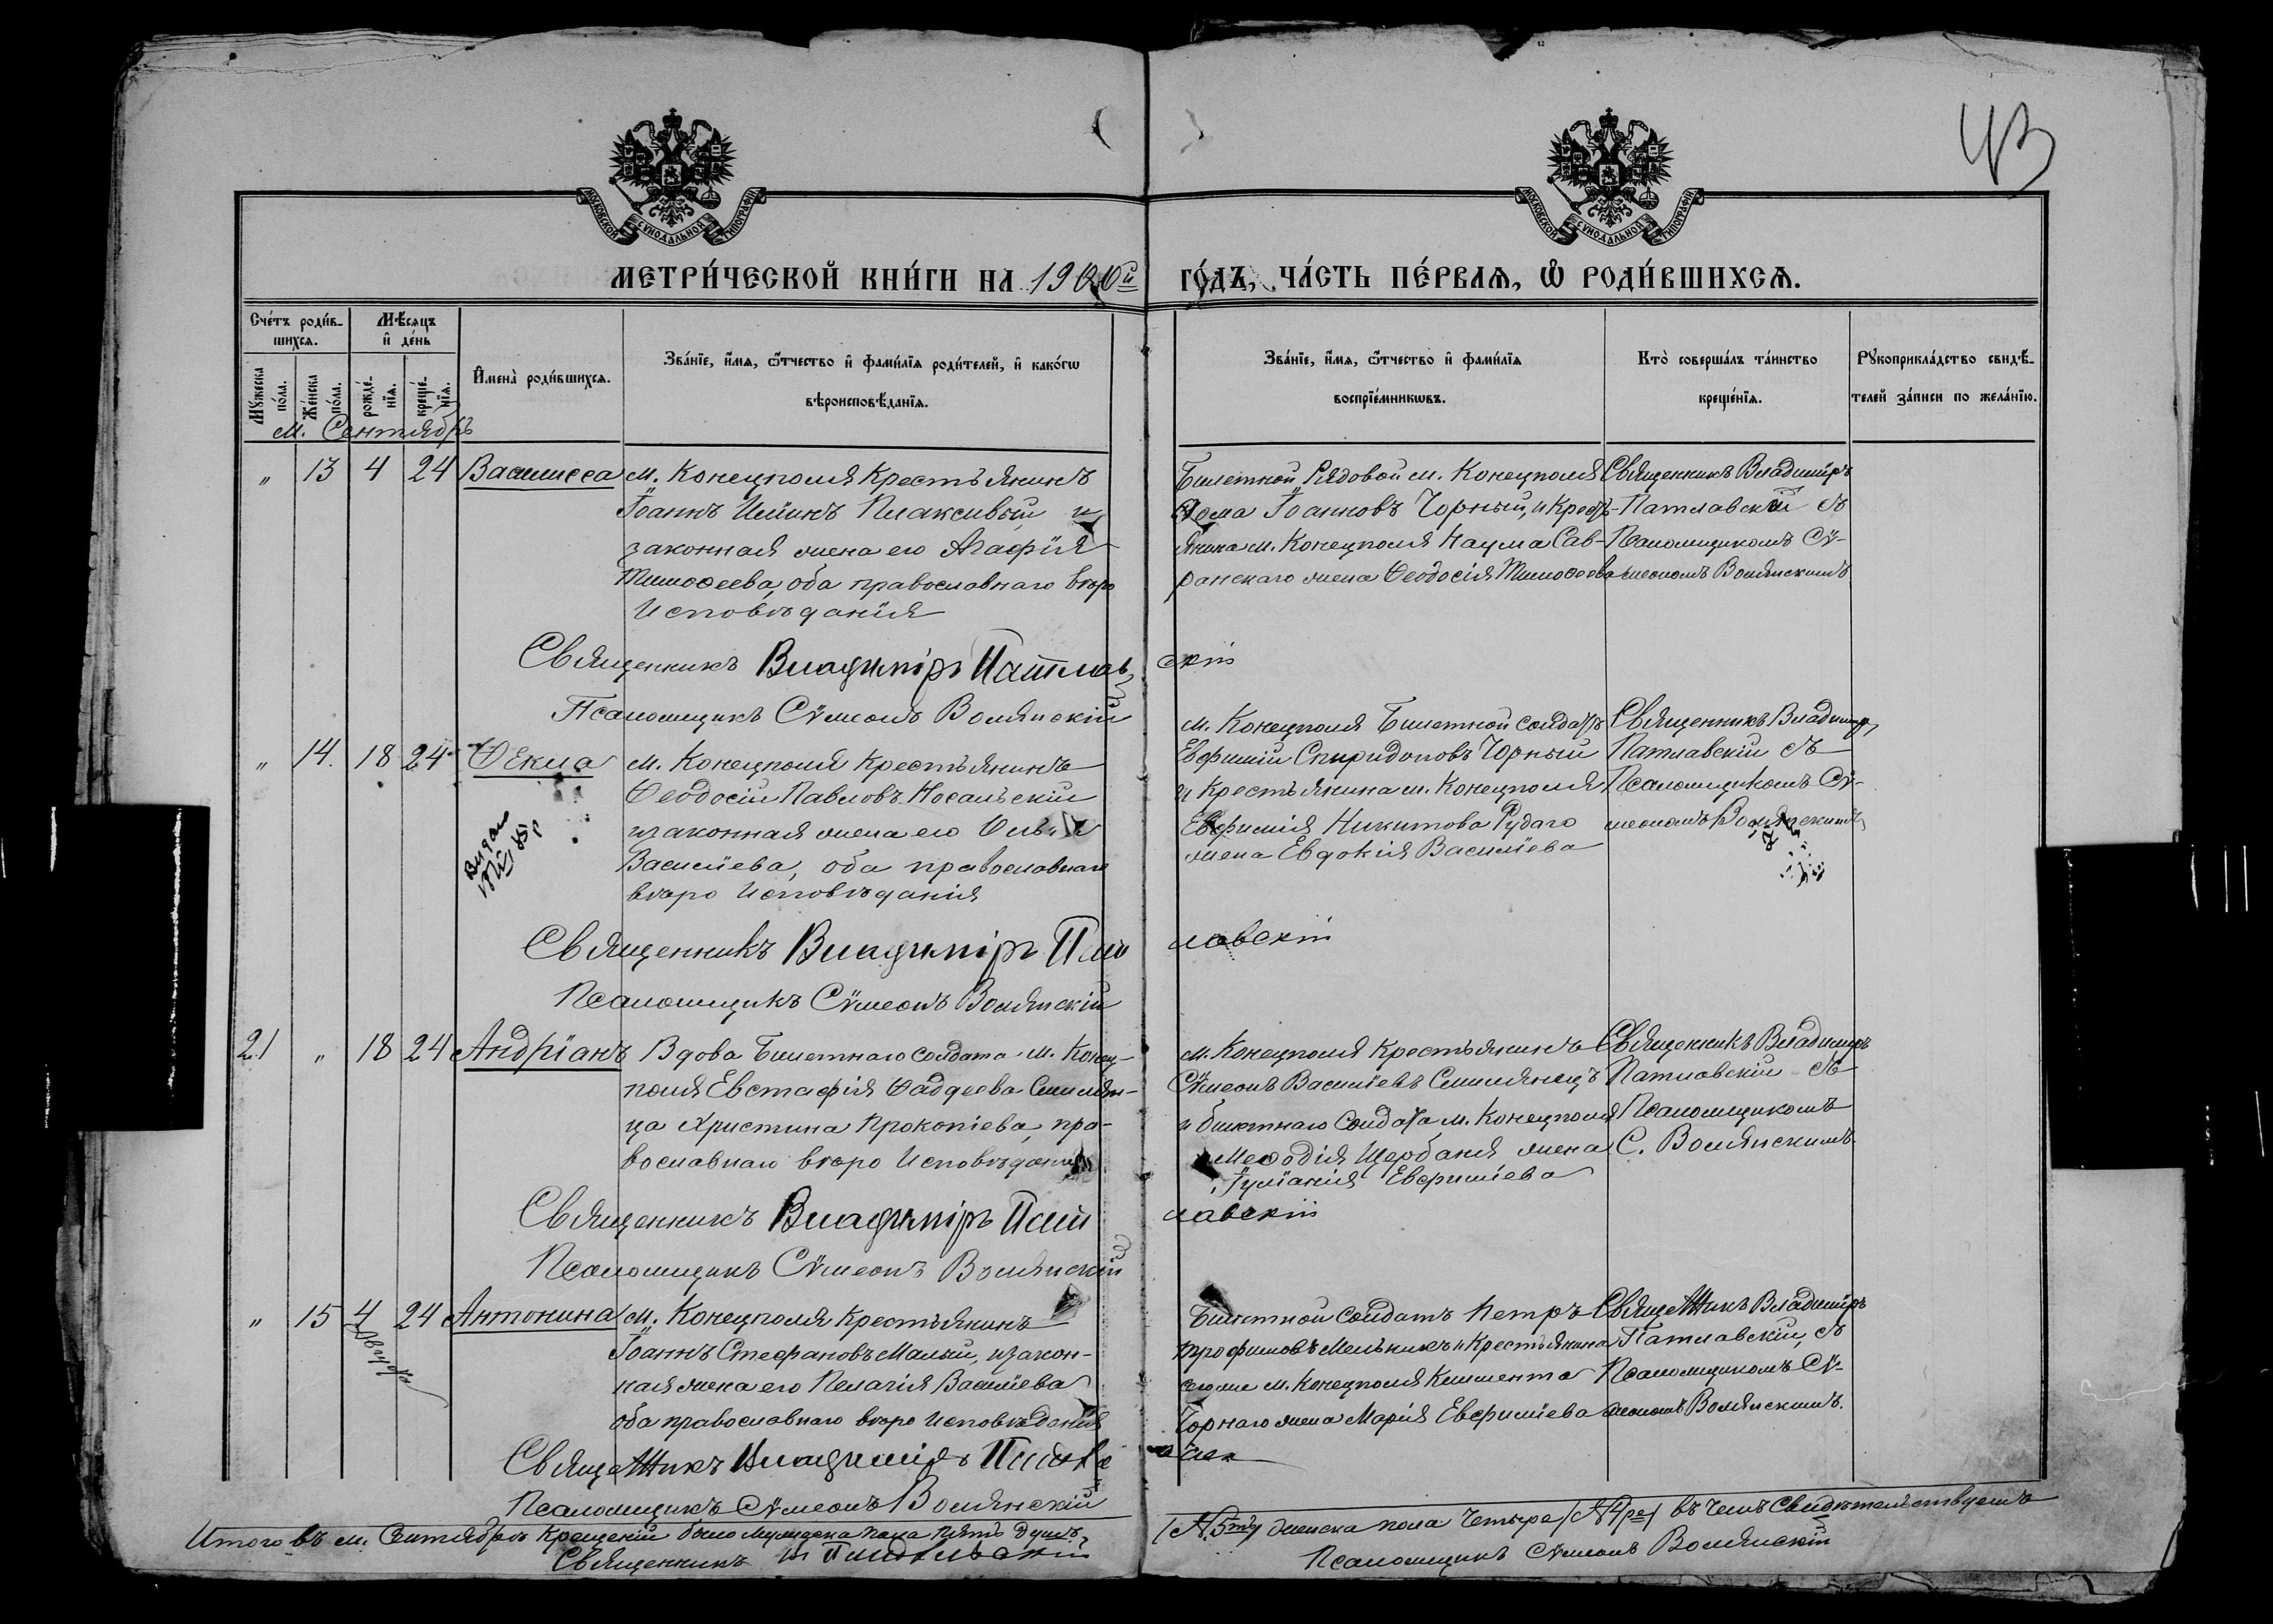 43
МОСКОВСКОЙ СѴНОДАЛЬНОЙ ТИПОГРАФІИ
МОСКОВСКОЙ СѴНОДАЛЬНОЙ ТИПОГРАФІИ
МЕТРИ́ЧЕСКОЙ КНИ́ГИ НА 1900й
ГО́ДЪ, ЧА́СТЬ ПЕ́РВАѦ, Ѡ РОДИ́ВШИХСѦ.
Сче́тъ роди́в-
шихсѧ.
Мѣсѧцъ
и де́нь
Мꙋжеска по́ла.
Же́нска по́ла.
рожде́-нїѧ.
креще́-нїѧ.
Имена̀ роди́вшихсѧ.
Зва́нїе, и́мѧ, ѻ҆́тчество и фами́лїѧ роди́телей, и како́гѡ
вѣроисповѣ́данїѧ.
Зва́нїе, и́мѧ, ѻ҆́тчество и фами́лїѧ
воспрїе́мникѡвъ.
Кто̀ соверша́лъ та́инство
креще́нїѧ.
Рꙋкоприкла́дство свидѣ́-
телей за́писи по жела́нїю.
м. Сентябрь
" 13 4 24 Василисса
м. Конецполя Крестьянинъ
Іоаннъ Плаксивый и
законная жена его Агафія
Тимоѳеева, оба православнаго вѣро
Исповѣданія
Билетной Рядовой м. Конецполя
Ѳома Іоанновъ Чорный, и Кресть-
янина м. Конецполя Наума Сав-
ранскаго жена Ѳеодосія Тимоѳеева
Священникъ Владиміръ
Патлавскій съ
Псаломщикомъ Сѵ-
меономъ Волянскимъ
Священникъ Владиміръ Патлав
скій
Псаломщикъ Сѵмеонъ Волянскій
" 14. 18 24 Ѳекла
м. Конецполя Крестьянинъ
Ѳеодосій Павловъ Носальскій
и законная жена его
Василіева, оба православнаго
вѣро Исповѣданія
м. Конецполя Билетной солдатъ
Евфимій Спиридоновъ Чорный
и Крестьянина м. Конецполя
Евфимія Никитова Рудаго
жена Евдокія Василіева
Священникъ Владиміръ
Патлавскій съ
Псаломщикомъ Сѵ-
меономъ Волянскимъ
Священникъ Владиміръ Пат
лавскій
Псаломщикъ Сѵмеонъ Волянскій
21 " 18 24 Андріанъ
Вдова Билетнаго солдата м. Конец-
поля Евстафія Ѳаддеева Смилян-
ца Христина Прокопіева, пра-
вославнаго вѣро Исповѣданія
м. Конецполя Крестьянинъ
Сѵмеонъ Василіевъ Смилянецъ
и билетнаго солдата м. Конецполя
Меѳодія Щербаня жена
Іуліанія Евфиміева
Священникъ Владиміръ
Патлавскій съ
Псаломщикомъ
С. Волянскимъ
Священникъ Владиміръ Пат
лавскій
Псаломщикъ Сѵмеонъ Волянскій
" 15 4 24 Антонина
Августа
м. Конецполя Крестьянинъ
Іоаннъ Стефановъ Малый, и закон-
ная жена его Пелагія Василіева
оба православнаго вѣро Исповѣданія
Билетной солдатъ Петръ
Трофимовъ Мельникъ и Крестьянина
м. Конецполя Климента
Чорнаго жена Марія Евфиміева
Священникъ Владиміръ
Патлавскій, съ
Псаломщикомъ Сѵ-
меономъ Волянскимъ.
Священникъ Владиміръ
Псаломщикъ Сѵмеонъ Волянскій
Итого въ м. Сентябрѣ Крещеній было мужеска пола пять душъ
(№ 5ть) женска пола Четыре (№ 4ре) въ чемъ свидѣтельствуемъ
Священникъ
Псаломщикъ Сѵмеонъ Волянскій